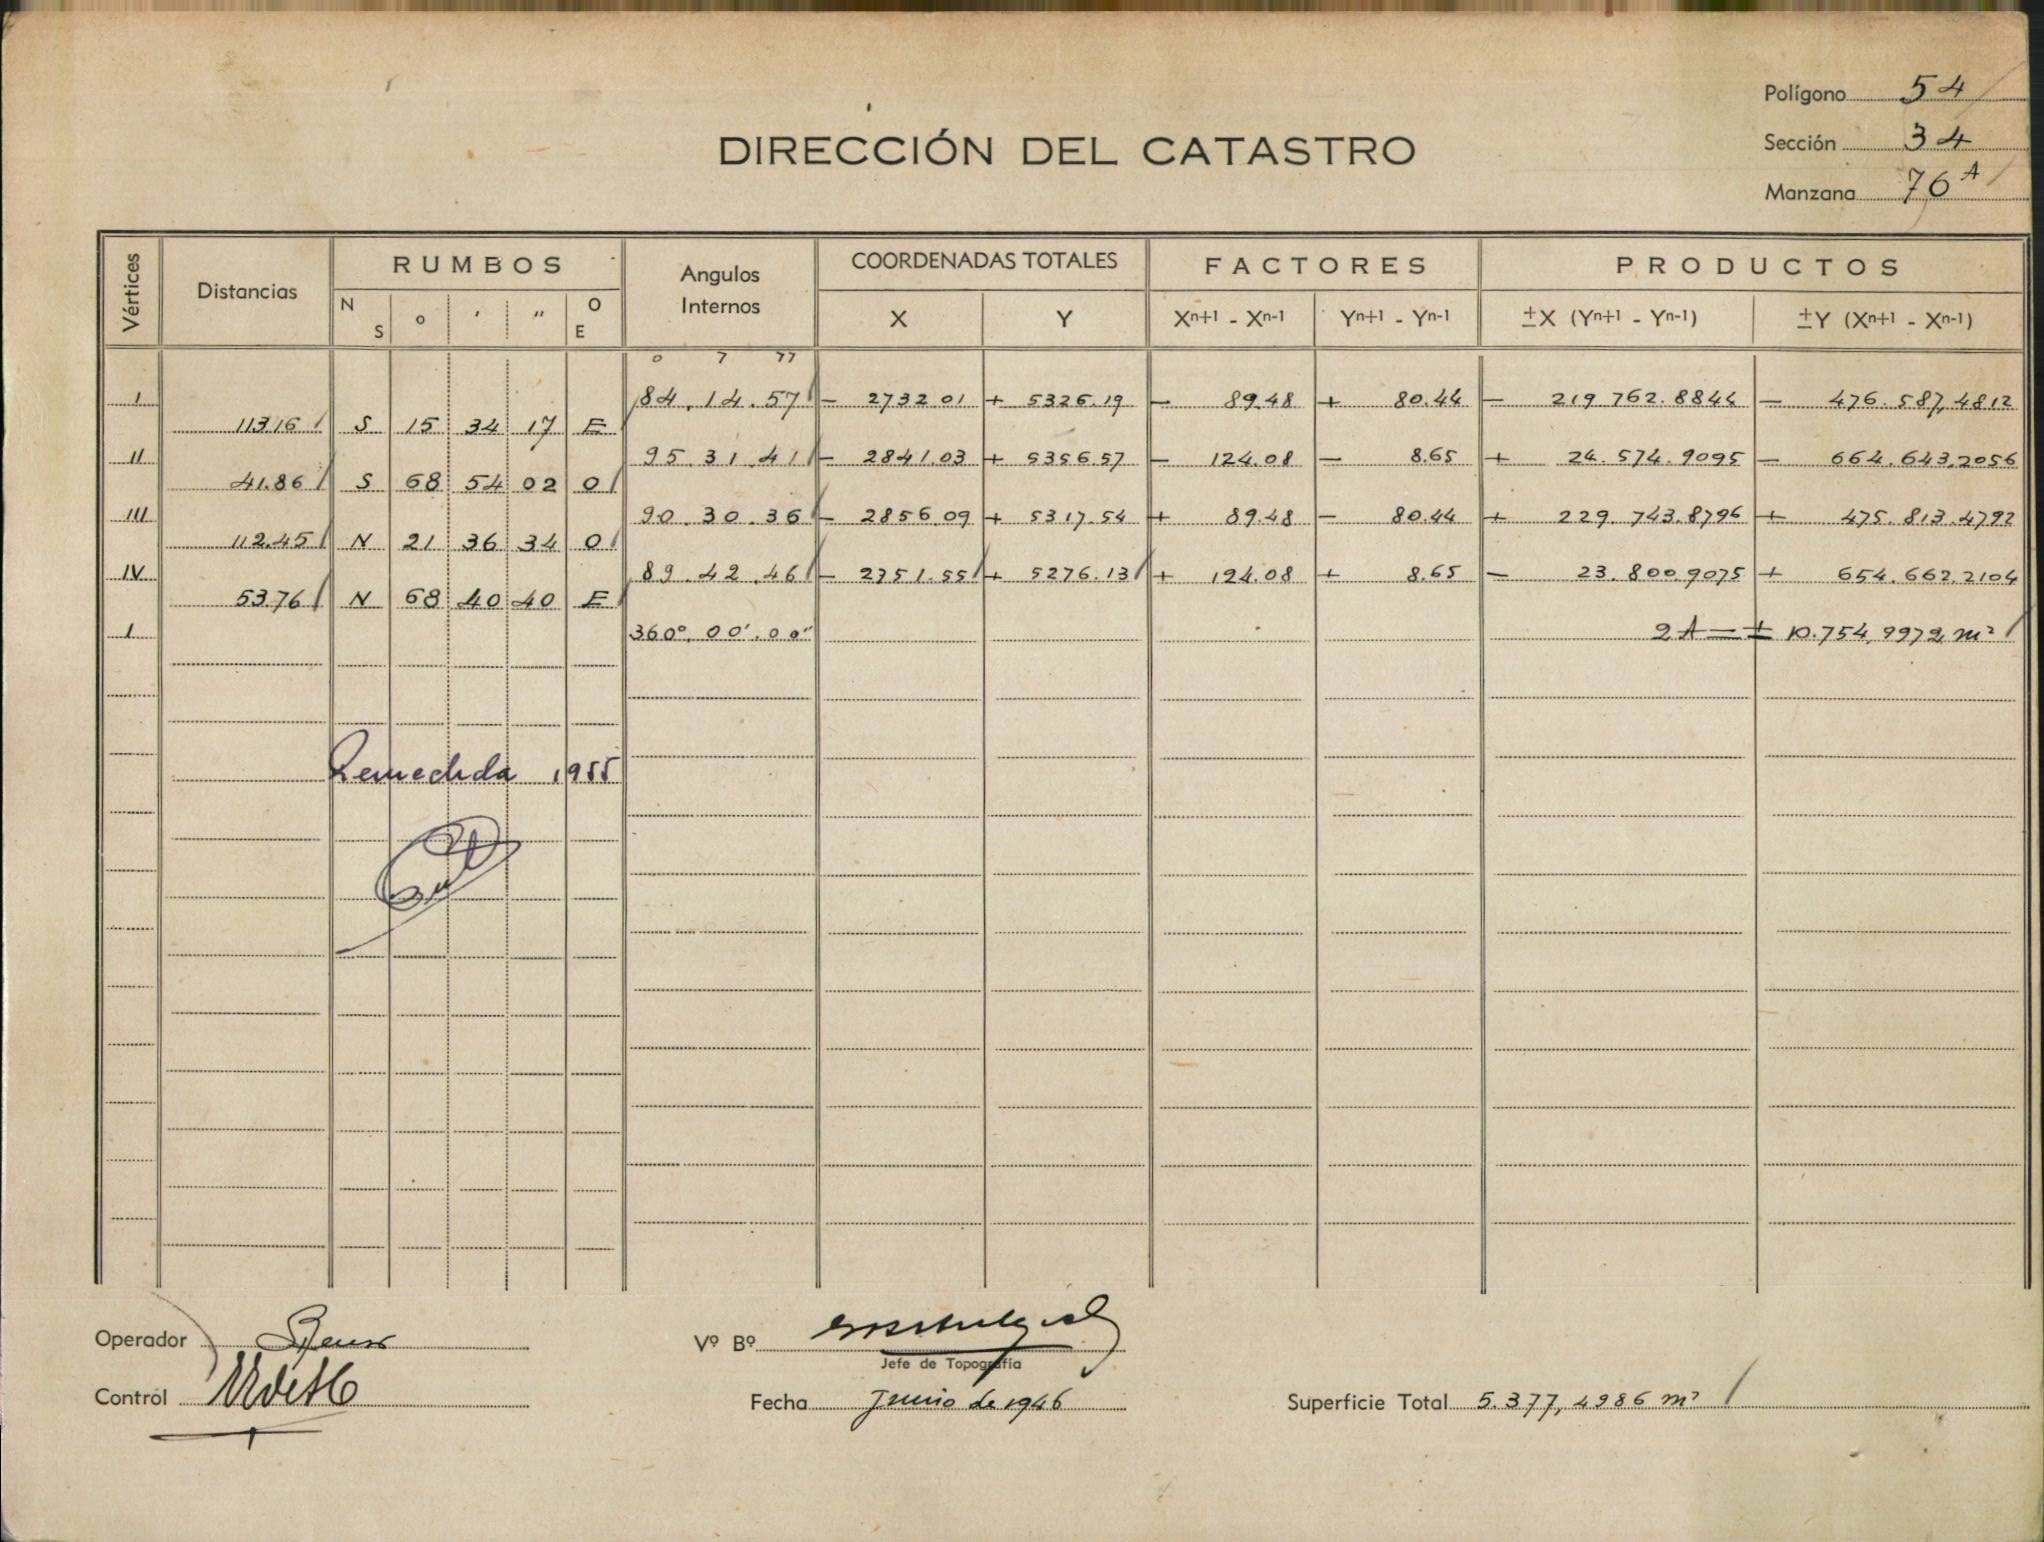 Polígono 54
Sección 34
Manzana 76 A
DIRECCIÓN DEL CATASTRO
Vértices Distancias RUMBOS Angulos Internos COORDENADAS TOTALES FACTORES PRODUCTOS
N S o ' " O E X Y Xn+1 - Xn-1 Yn+1 - Yn-1 ±X (Yn+1 - Yn-1) ±Y (Xn+1 - Xn-1)
o ' "
I 84.14.57 - 2732.01 + 5326.19 - 89.48 + 80.44 - 219 762.8844 - 476.587,4812
113.16 S 15 34 17 E
II 95.31.41 - 2841.03 + 5356.57 - 124.08 - 8.65 + 24.574.9095 - 664.643,2056
41.86 S 68 54 02 O
III 90.30.36 - 2856.09 + 5317.54 + 89.48 - 80.44 + 229.743.8796 + 475.813.4792
112.45 N 21 36 34 O
IV 89.42.46 - 2751.55 + 5276.13 + 124.08 + 8.65 - 23.800.9075 + 654.662.2104
53.76 N 68 40 40 E
I 360°.00'.00" 2A = ± 10.754,9972 m²
Remedida 1955
Operador
Vº Bº
Jefe de Topografía
Control
Fecha Junio de 1946
Superficie Total 5.377,4986 m²